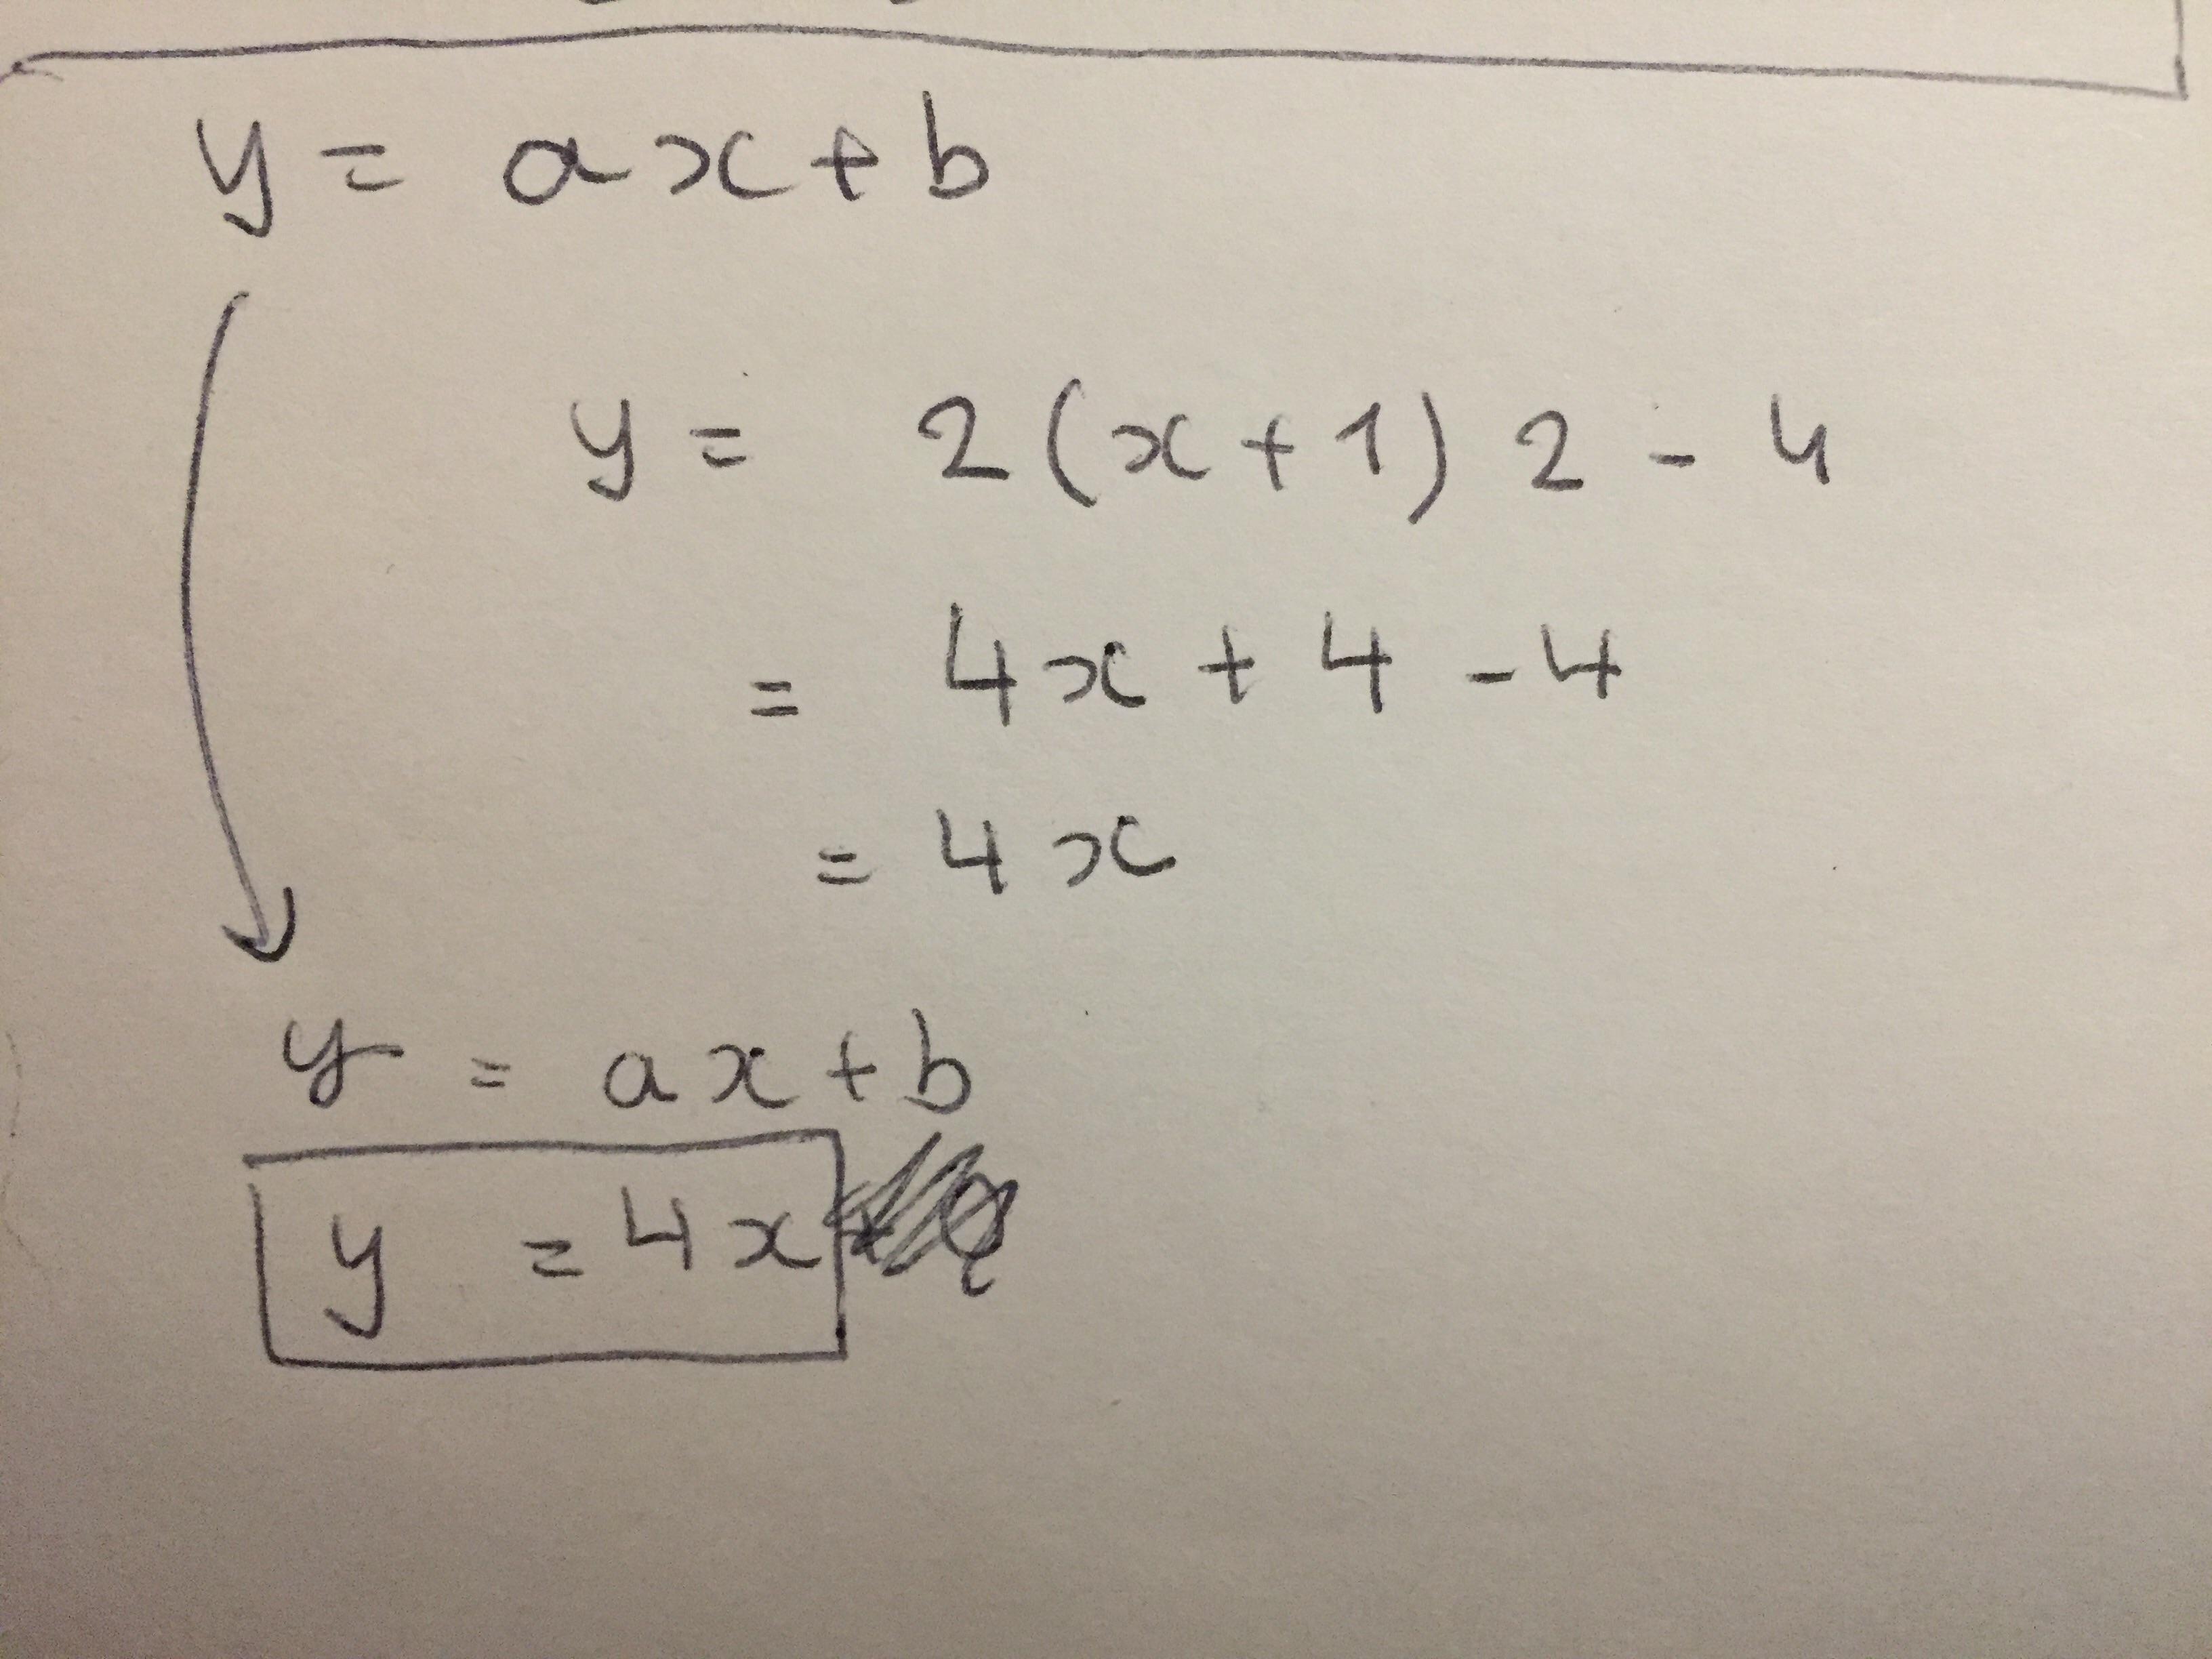 y = ax + b
y = 2(x+1)2 - 4
= 4x + 4 - 4
= 4x
y = ax + b
y = 4x